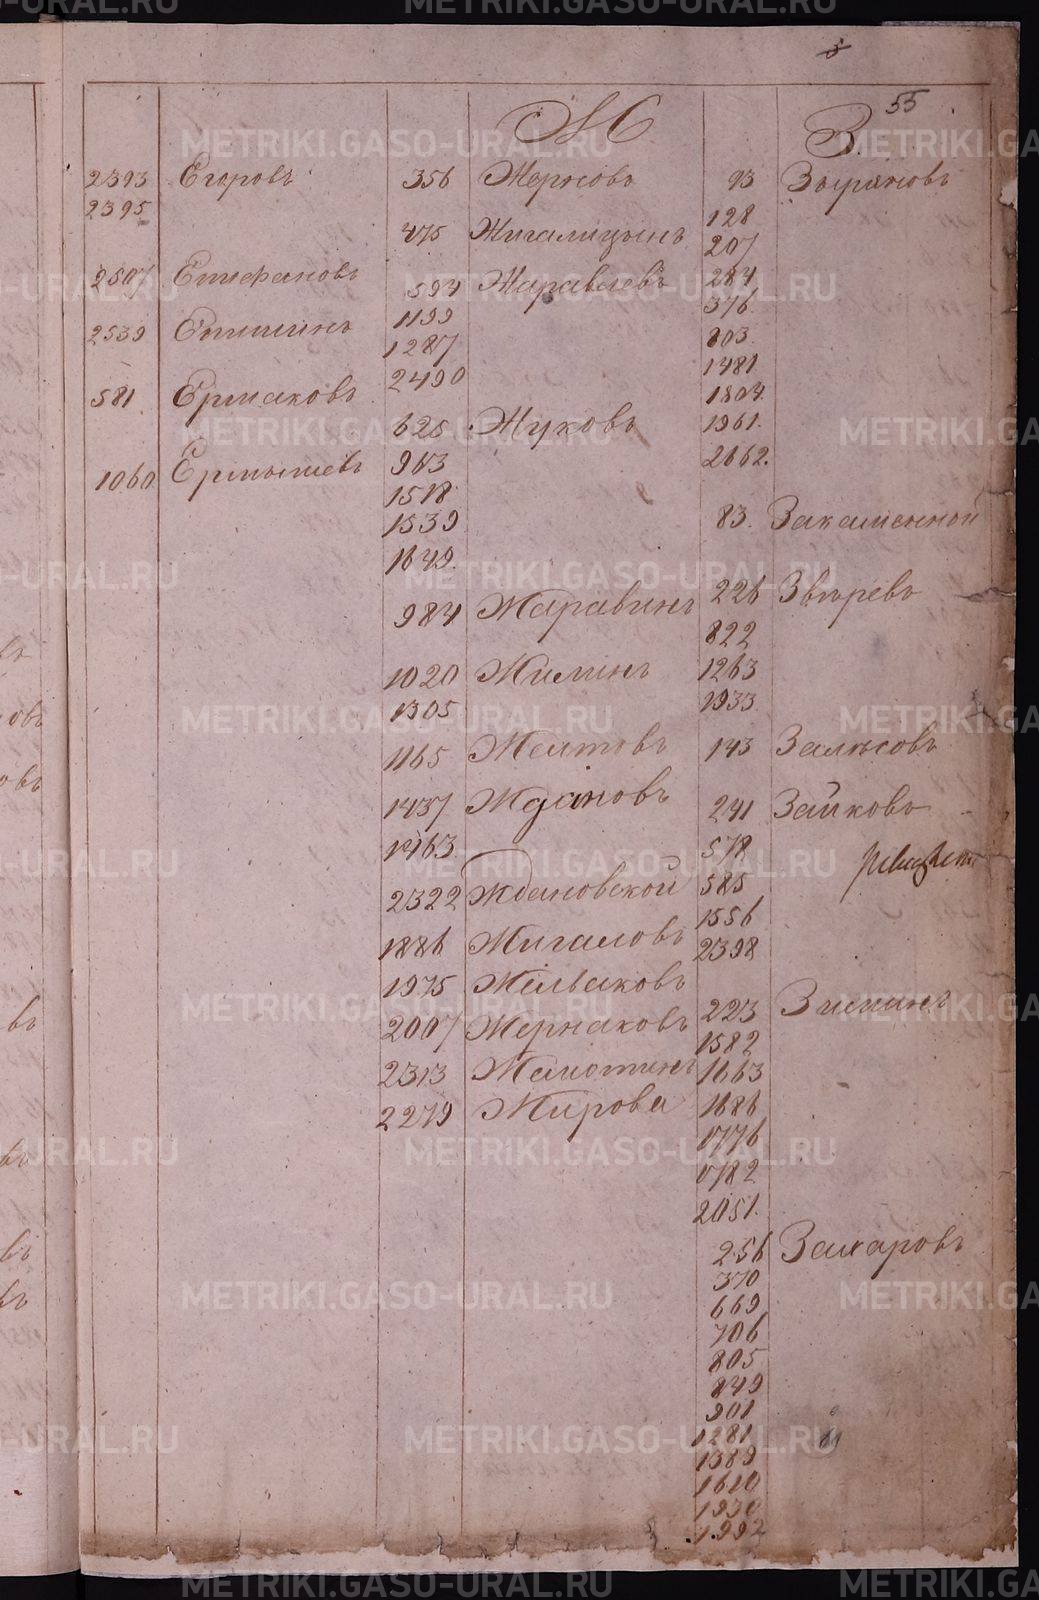 55
Ж
З.
2393 Егоровъ
2395
2507 Епифановъ
2539 Епишинъ
581 Ермаковъ
1060 Ермышевъ
356 Жерновъ
475 Жигалицынъ
594 Журавлевъ
1199
1287
2490
625 Жуковъ
983
1518
1539
1649.
984 Журавинъ
1020 Жилинъ
1305
1165 Желтовъ
1437 Ждановъ
1463
2322 Ждановской
1886 Жигаловъ
1975 Желваковъ
2007 Жернаковъ
2313
2279 Жирова
93 Зыряновъ
128
207
284
376
803.
1481
1804.
1961.
2662.
83. Закаменной
226 Звѣревъ
822
1263
1933
143 Залѣсовъ
241 Зайковъ
578
585
1556
2398
223 Зиминъ
1582
1663
1686
1776
1782
2051.
256 Захаровъ
370
669
706
805
849
901
1281
1389
1610
1930
1992
METRIKI.GASO-URAL.RU